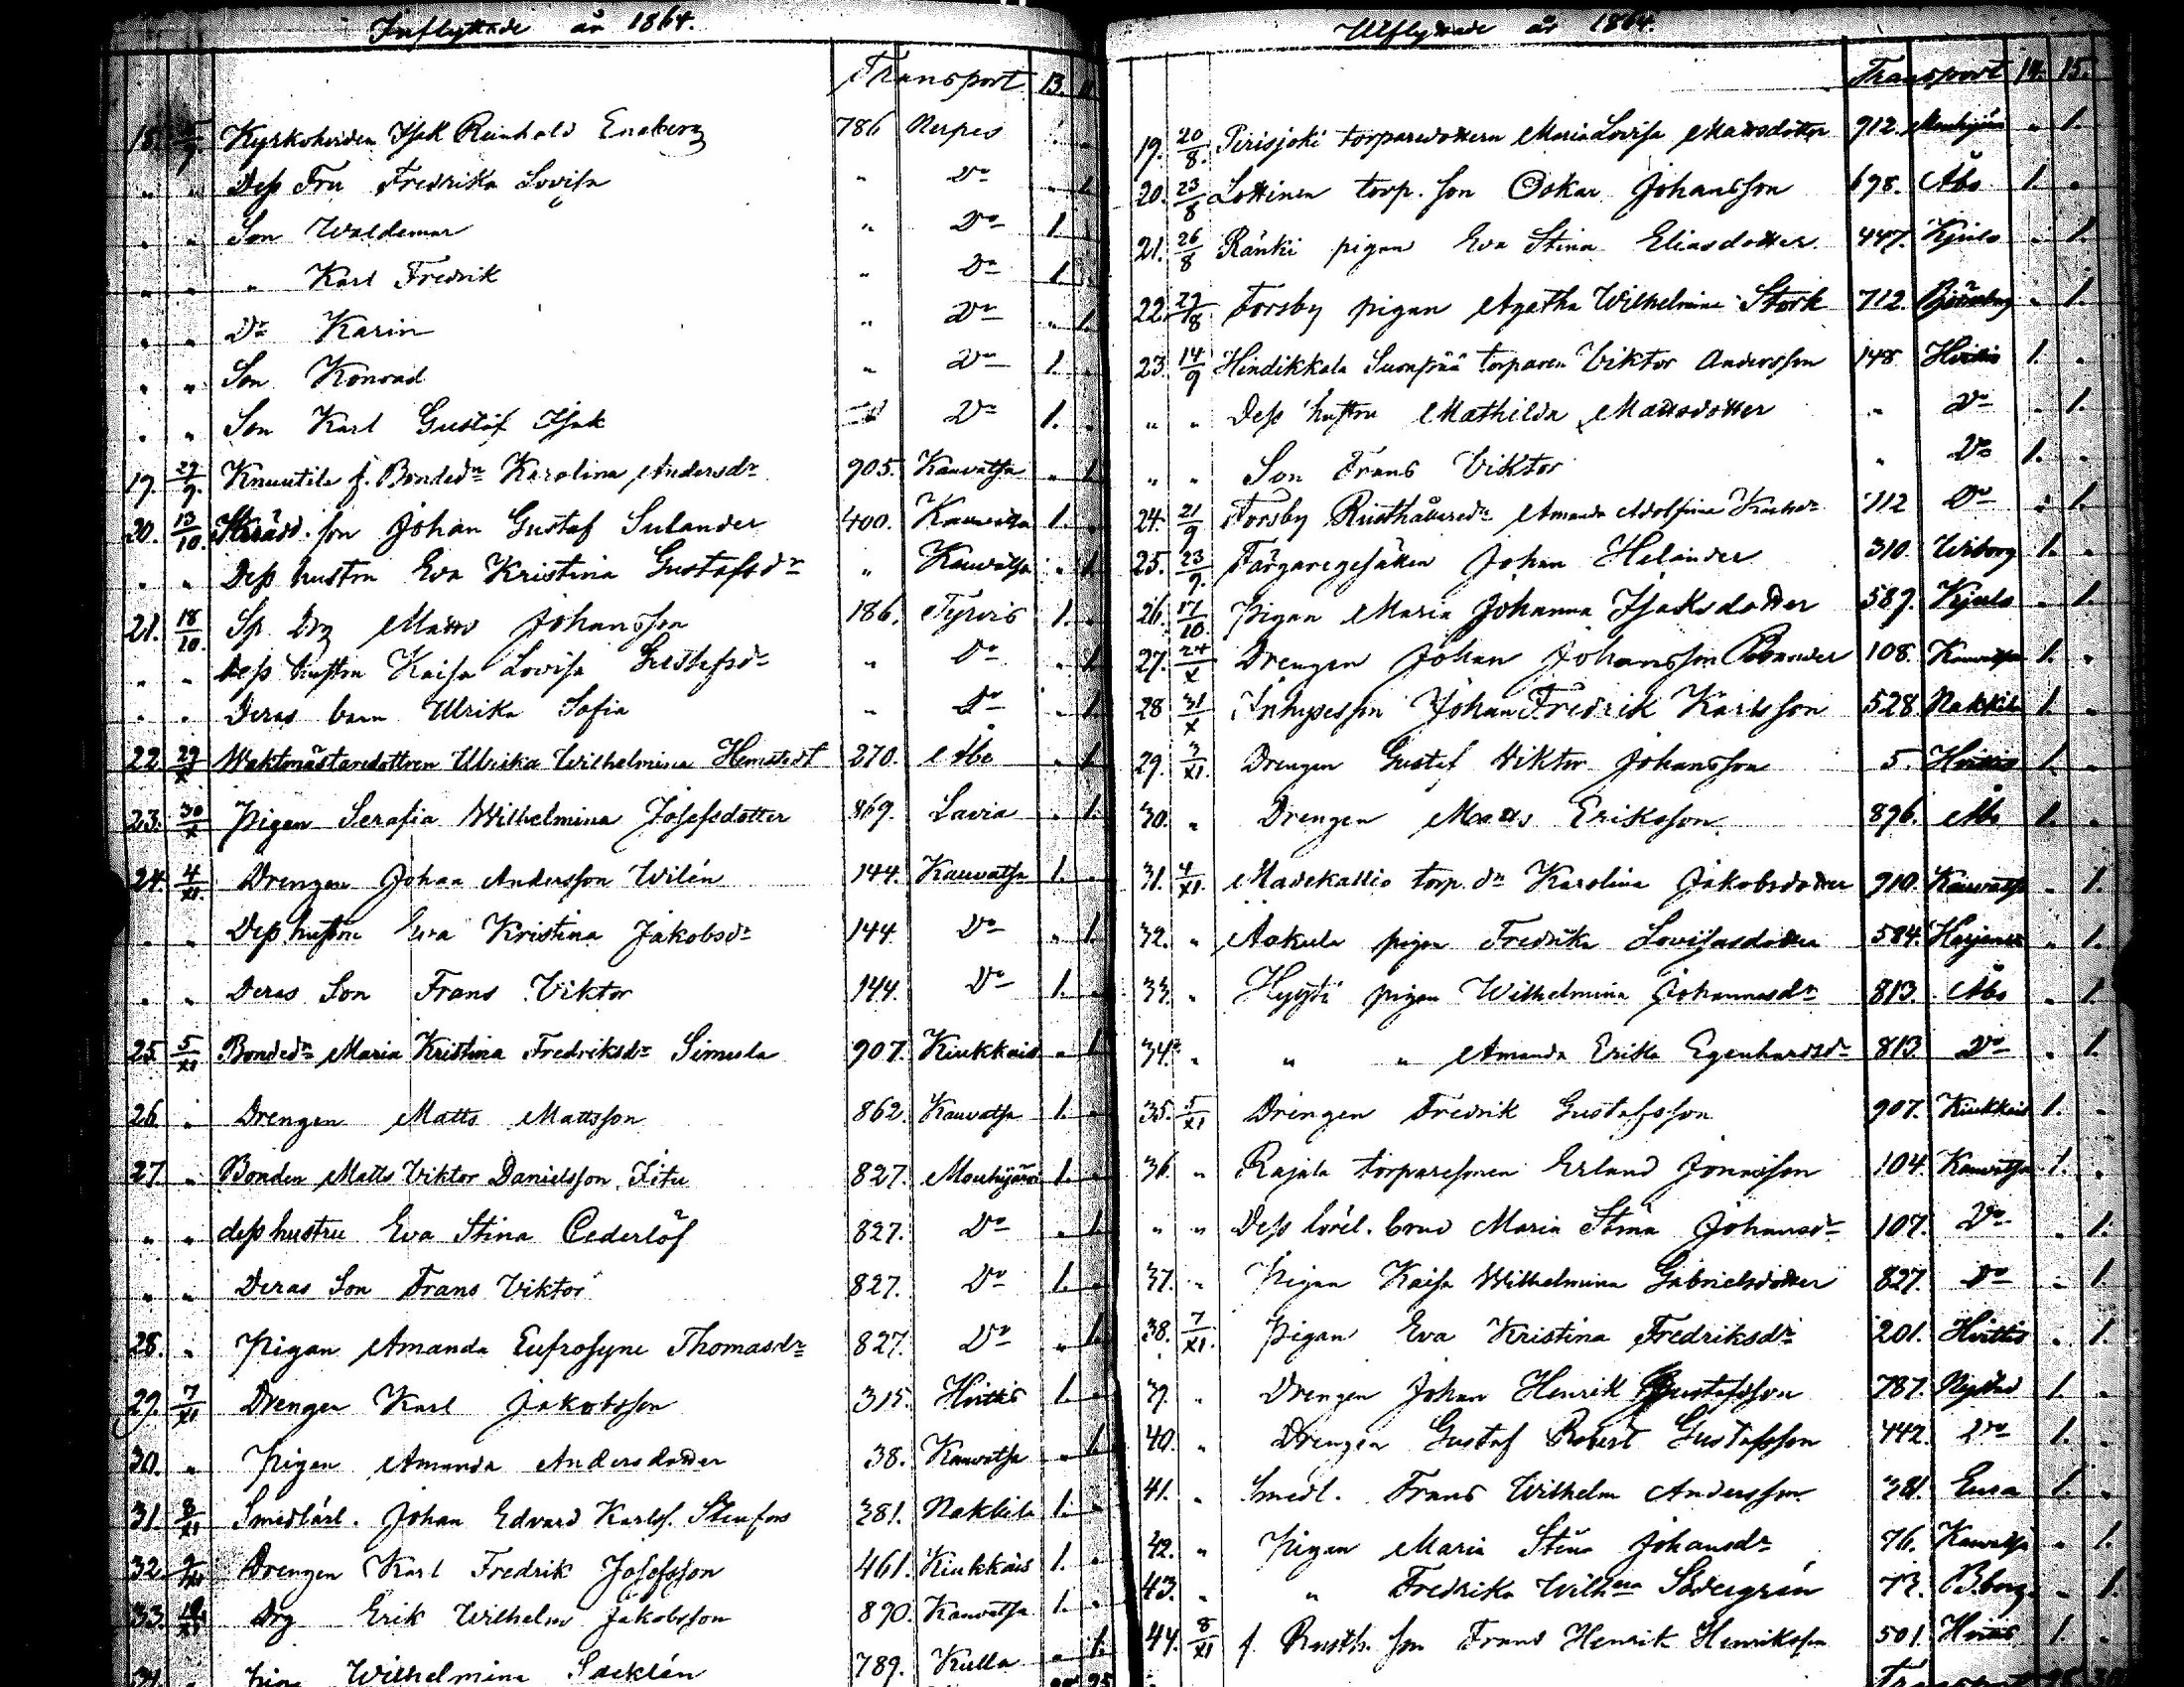 Inflyttade år 1864.
Transport 13.
18. 5/9. Kyrkoherden Isak Reinhold Eneberg 786 Nerpes
" " Dess Fru Fredrika Lovisa " Do " 1.
" " Son Waldemar " Do 1.
" " " Karl Fredrik " Do 1.
" " Do Karin " Do " 1.
" " Son Konrad " Do 1. "
" " Son Karl Gustaf Isak Do 1. "
19. 29/9. Knuutila f. Bondedr Karolina Andersdr 905. Kauvatsa " 1.
20. 13/10. son Johan Gustaf Sulander 400. Kauvatsa 1. "
" " Dess hustru Eva Kristina Gustafsdr " Kauvatsa " 1.
21. 18/10. Sp. Drg Matts Johansson 186. Tyrvis 1. "
" " Dess hustru Kaisa Lovisa Gustafsdr " Do " 1.
" " Deras barn Ulrika Sofia " Do " 1.
22 29/X Waktmästaredottren Ulrika Wilhelmina Hemstedt 270. Åbo " 1.
23. 30/X Pigan Serafia Wilhelmina Josefsdotter 869. Lavia " 1.
24. 4/XI. Drengen Johan Andersson Wilén 144. Kauvatsa 1. "
" " Dess hustru Eva Kristina Jakobsdr 144 Do " 1.
" " Deras Son Frans Viktor 144. Do 1. "
25 5/XI Bondedr Maria Kristina Fredriksdr Simula 907. Kiukkais " 1.
26 " Drengen Matts Mattsson 862. Kauvatsa 1. "
27. " Bonden Matts Viktor Danielsson 827. Mouhijärvi 1. "
" " dess hustru Eva Stina Cederlöf 827. Do " 1.
" " Deras Son Frans Viktor 827. Do 1. "
28. " Pigan Amanda Eufrosyne Thomasdr 827. Do " 1.
29. 7/XI Drengen Karl Jakobsson 315. Hvittis 1. "
30. " Pigan Amanda Andersdotter 38. Kauvatsa " 1.
31. 8/XI Smedlärl. Johan Edvard Karlss. Stenfors 381. Nakkila 1. "
32. Drengen Karl Fredrik Josefsson 461. Kiukkais 1. "
33. Drg Erik Wilhelm Jakobsson 890. Kauvatsa 1. "
Wilhelmina 789. Kulla " 1.
Utflyttade år 1864.
Transport 14. 15.
19. 20/8. Perisjoki torparedottern Maria Lovisa Mattsdotter 912. Mouhijärvi " 1.
20. 23/8 Lottinen torp. son Oskar Johansson 698. Åbo 1. "
21. 26/8 Ränki pigan Eva Stina Eliasdotter 447. Kjulo " 1.
22. 29/8 Forsby pigan Agatha Wilhelmina Stork 712. Björneborg " 1.
23. 14/9 Hindikkala Suonpää torparen Viktor Andersson 148 Hvittis 1. "
" " Dess hustru Mathilda Mattsdotter " Do " 1.
" " Son Frans Viktor " Do 1. "
24. 21/9 Forsby Rusthållaredr Amanda Adolfina 712 Do " 1.
25. 23/9. Färgaregesällen Johan Helander 310. Wiborg 1. "
26. 17/10. Pigan Maria Johanna Isaksdotter 587. Kjulo " 1.
27. 24/X Drengen Johan Johansson 108. Kauvatsa 1. "
28 31/X Inhysesson Johan Fredrik Karlsson 528. Nakkila 1. "
29. 3/XI. Drengen Gustaf Viktor Johansson 5. Hvittis 1. "
30. " Drengen Matts Eriksson 896. Åbo 1. "
31. 4/XI. Madekallio torp. dr Karolina Jakobsdotter 910. Kauvatsa " 1.
32. " Aakula pigan Fredrika Lovisasdotter 584. Harjavalta " 1.
33. " Hyypö pigan Wilhelmina Johannasdr 813. Åbo " 1.
34. " " " Amanda Erika Egenhardsdr 813. Do " 1.
35. 5/XI Drengen Fredrik Gustafsson 907. Kiukkais 1. "
36. " Rajala torparesonen Erland Jonasson 104. Kauvatsa 1. "
" " Dess lovl. brud Maria Stina Johansdr 107. Do " 1.
37. " Pigan Kaisa Wilhelmina Gabrielsdotter 827. Do " 1.
38. 7/XI. Pigan Eva Kristina Fredriksdr 201. Hvittis " 1.
39. " Drengen Johan Henrik Gustafsson 787. Nystad 1. "
40. " Drengen Gustaf Robert Gustafsson 442. Do 1. "
41. " Smedl. Frans Wilhelm Andersson 381. Eura 1. "
42. " Pigan Maria Stina Johansdr 76. Kauvatsa " 1.
43. " " Fredrika Wilhna Södergrén 73. B.borg " 1.
44. 8/XI f. Rusth. son Frans Henrik Henriksson 501. Hvittis 1. "
Transport